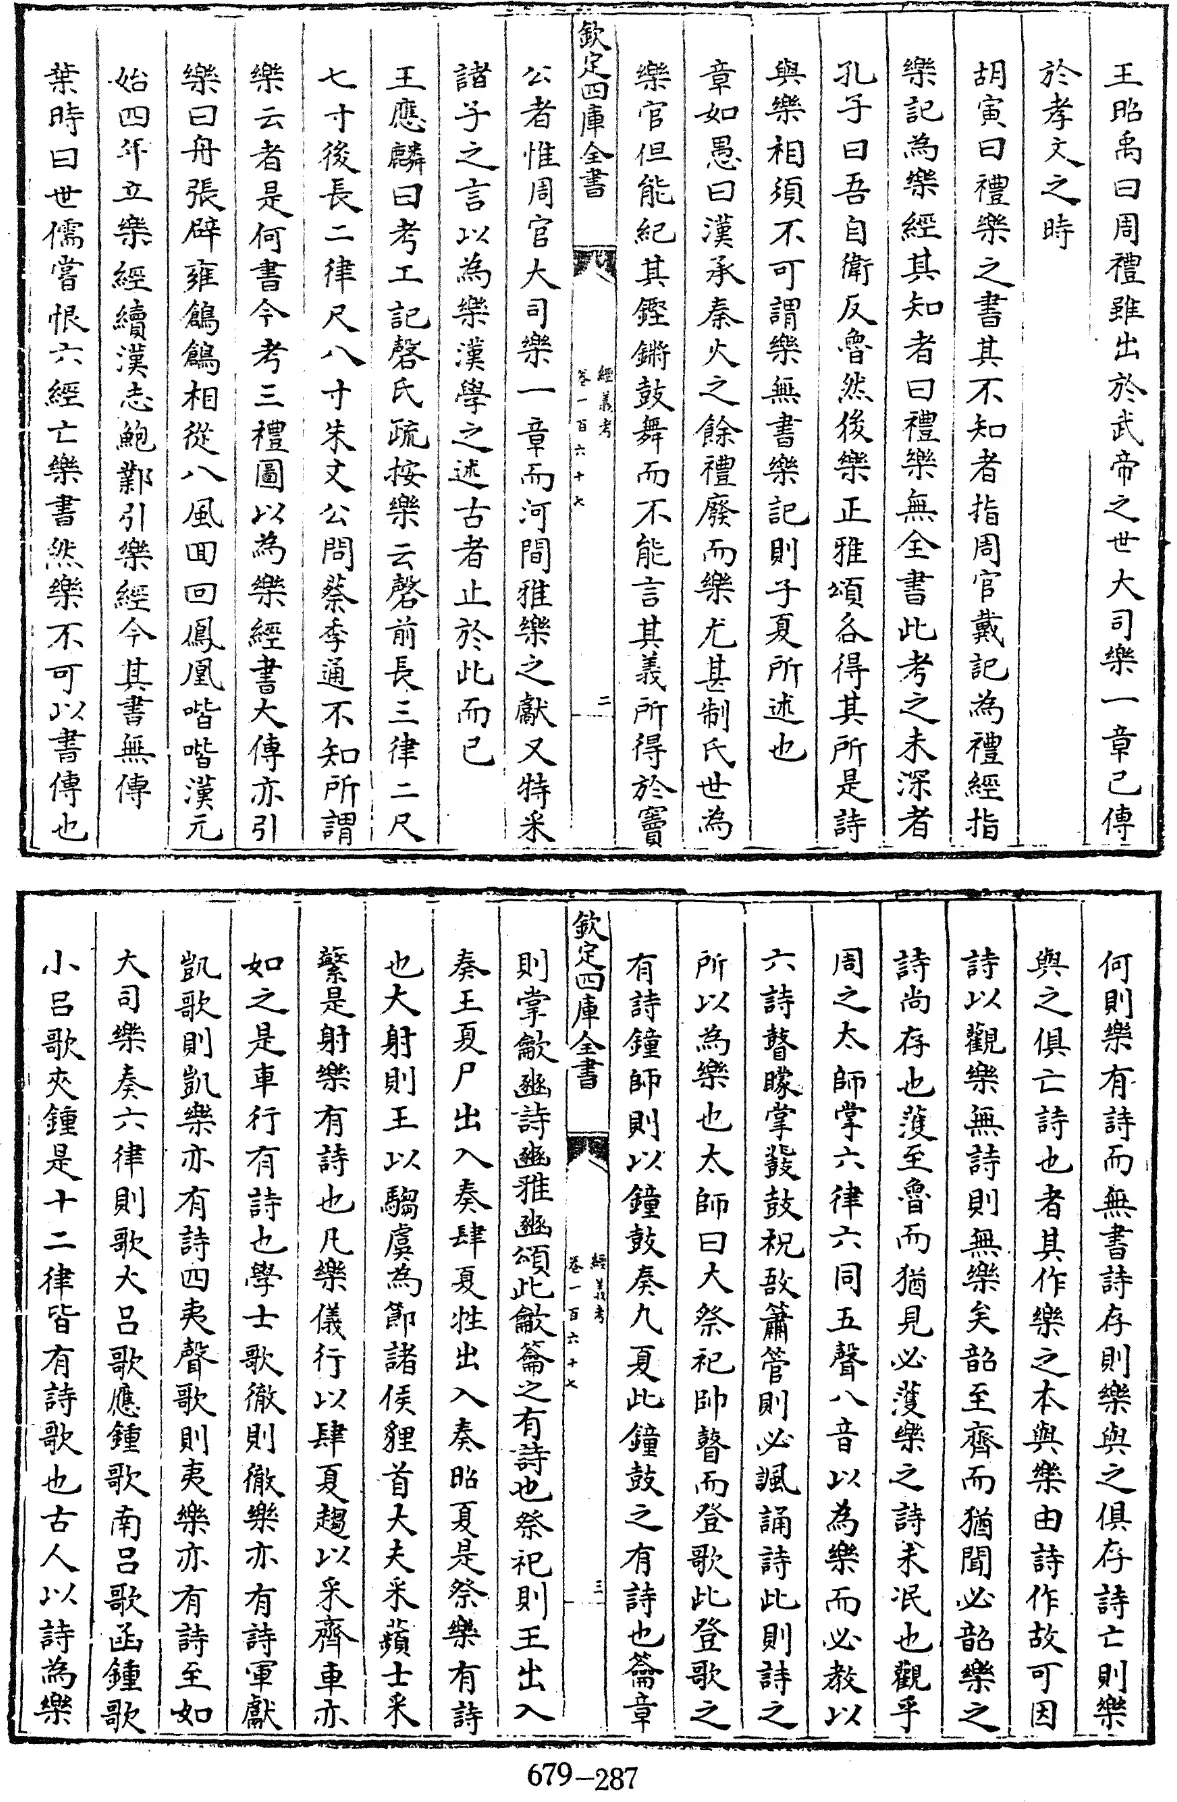 王昭禹曰周禮雖出於武帝之世大司樂一章已傳
於孝文之時
胡寅曰禮樂之書其不知者指周官戴記為禮經指
樂記為樂經其知者曰禮樂無全書此考之未深者
孔子曰吾自衛反魯然後樂正雅頌各得其所是詩
與樂相須不可謂樂無書樂記則子夏所述也
章如愚曰漢承秦火之餘禮廢而樂尤甚制氏世為
樂官但能紀其鏗鏘鼓舞而不能言其義所得於竇
欽定四庫全書
經義考
卷一百六十七
二
公者惟周官大司樂一章而河間雅樂之獻又特采
諸子之言以為樂漢學之述古者止於此而已
王應麟曰考工記磬氏疏按樂云磬前長三律二尺
七寸後長二律尺八寸朱文公問蔡季通不知所謂
樂云者是何書今考三禮圖以為樂經書大傳亦引
樂曰舟張辟雍鶬鶬相從八風囘回鳳凰喈喈漢元
始四年立樂經續漢志鮑鄴引樂經今其書無傳
葉時曰世儒嘗恨六經亡樂書然樂不可以書傳也
何則樂有詩而無書詩存則樂與之俱存詩亡則樂
與之俱亡詩也者其作樂之本與樂由詩作故可因
詩以觀樂無詩則無樂矣韶至齊而猶聞必韶樂之
詩尚存也濩至魯而猶見必濩樂之詩未泯也觀乎
周之太師掌六律六同五聲八音以為樂而必教以
六詩瞽矇掌鼗鼓柷敔簫管則必諷誦詩此則詩之
所以為樂也太師曰大祭祀帥瞽而登歌此登歌之
有詩鐘師則以鐘鼓奏九夏此鐘鼓之有詩也籥章
欽定四庫全書
經義考
卷一百六十七
三
則掌龡豳詩豳雅豳頌此龡籥之有詩也祭祀則王出入
奏王夏尸出入奏肆夏牲出入奏昭夏是祭樂有詩
也大射則王以騶虞為節諸侯貍首大夫采蘋士采
蘩是射樂有詩也凡樂儀行以肆夏趨以采齊車亦
如之是車行有詩也學士歌徹則徹樂亦有詩軍獻
凱歌則凱樂亦有詩四夷聲歌則夷樂亦有詩至如
大司樂奏六律則歌大呂歌應鍾歌南呂歌函鍾歌
小呂歌夾鍾是十二律皆有詩歌也古人以詩為樂
679-287